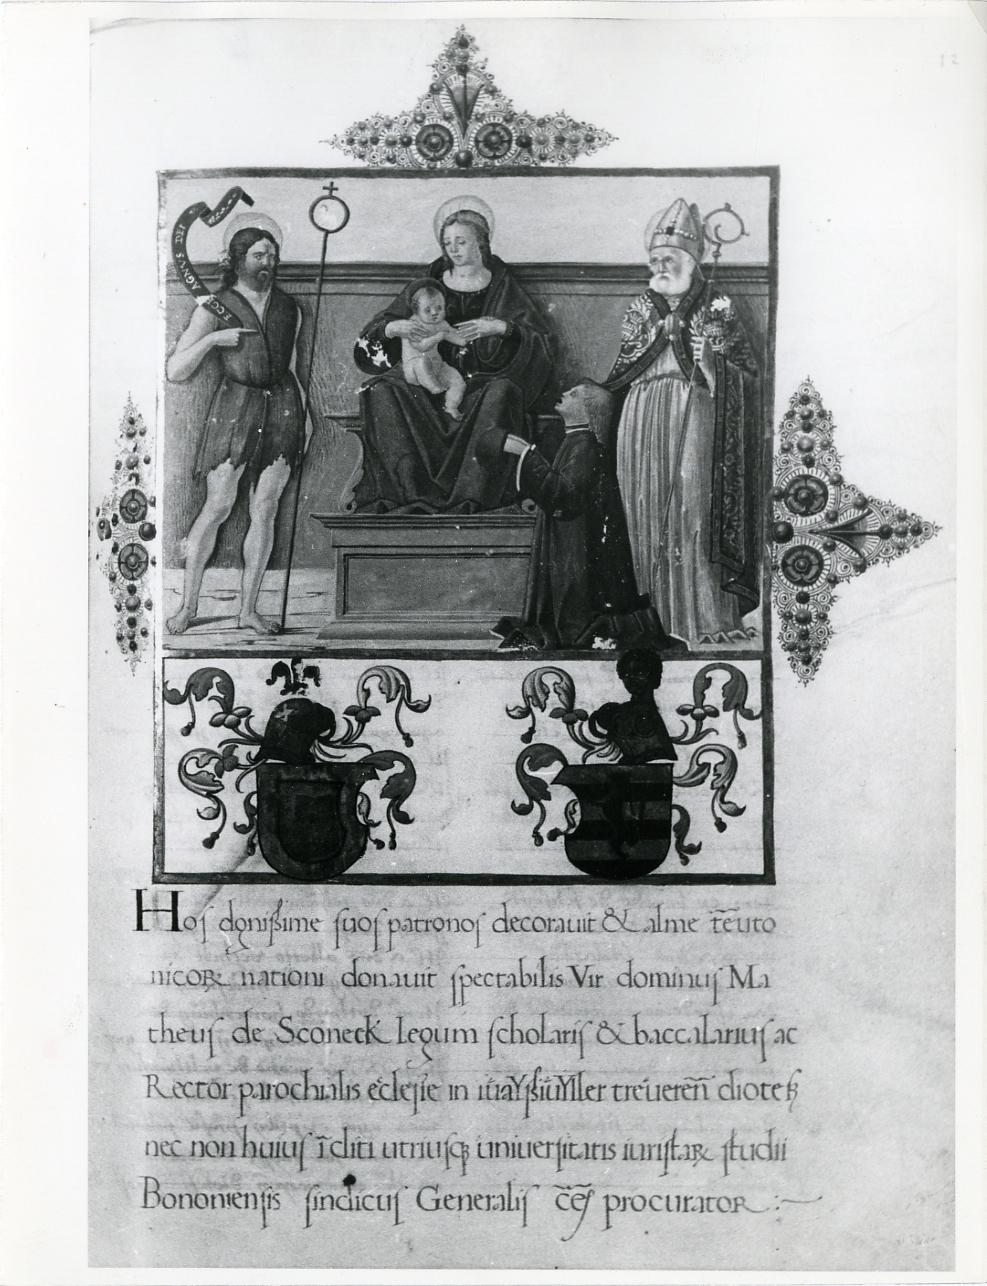 12
ECCE AGNVS DEI
Hoſ dgniſſime ſuoſ patronoſ decorauit & alme tēuto
nicoꝝ nationi donauit ſpectabilis Vir dominuſ Ma
theuſ de Sconeck legum ſcholariſ & baccalariuſ ac
Rector parochialis eccleſie in treuereñ
nec non huiuſ utriuſqꝫ uniuerſitatis iuriſtaꝝ ſtudii
Bononienſis ſindicuſ Generaliſ procuratoꝝ :~